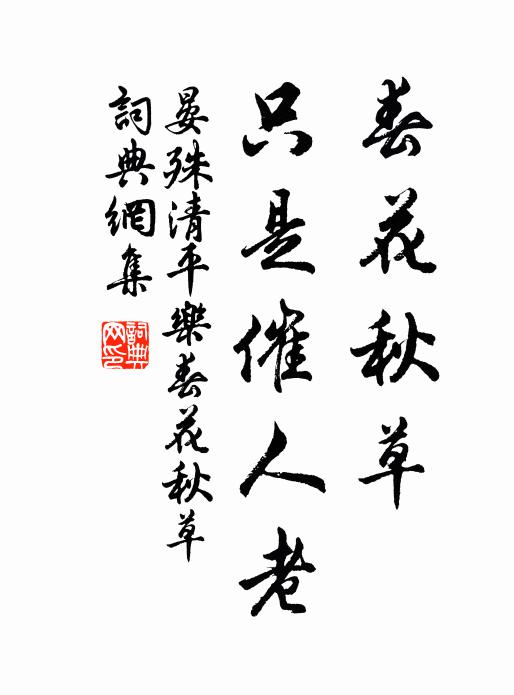 春花秋草
只是催人老
晏殊清平樂春花秋草
詞典網集
詞典网印